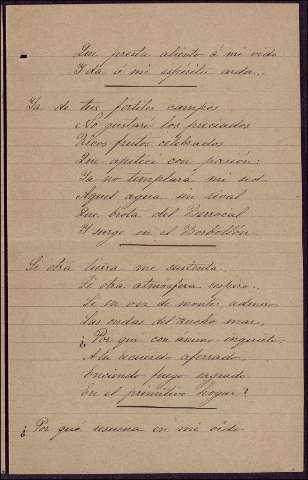 Que presta aliento á mi vida
Y da á mi espíritu arda...
Ya de tus fértiles campos
No gustaré los preciados
Ricos frutos celebrados
Que apetecí con pasión:
Ya no templará mi sed
Aquel agua sin rival
Que brota del Berrocal
Y surge en el Borbollón
Si otra tierra me sustenta
Si otra atmósfera respiro..
Si en vez de montes admiro
Las ondas del ancho mar,
¿Por qué con amor inquieto
A tu recuerdo aferrado,
Enciendo fuego sagrado
En el primitivo hogar?
¿Por qué resuena en mi oido